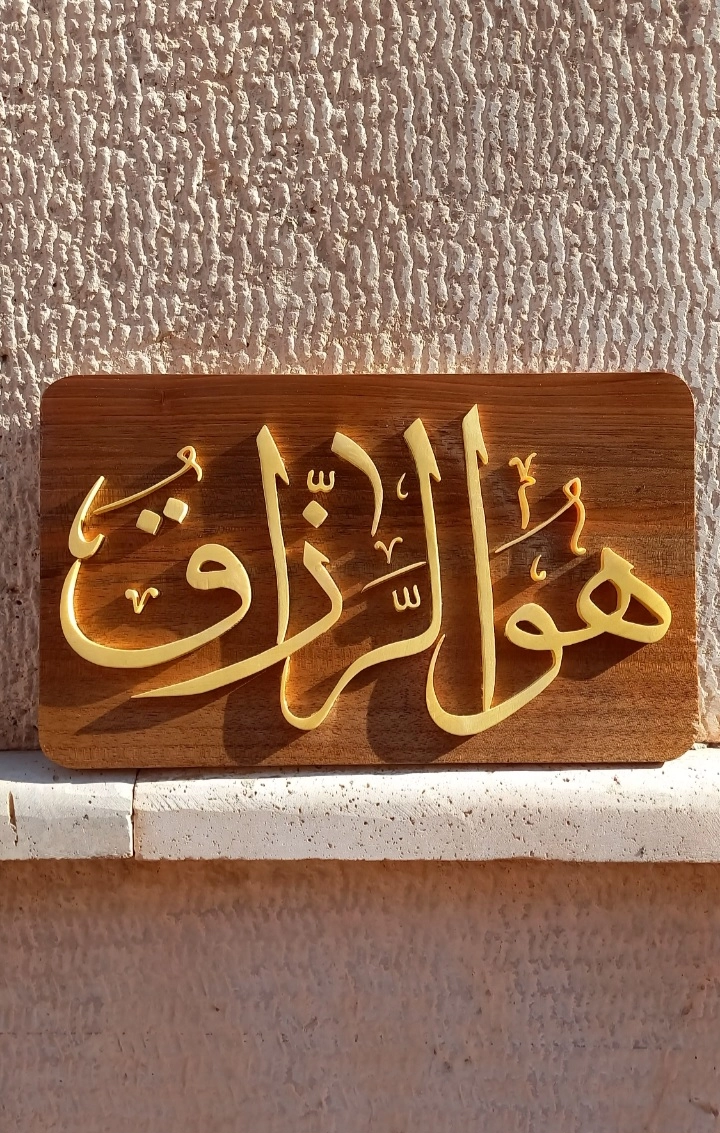 هو الرزاق